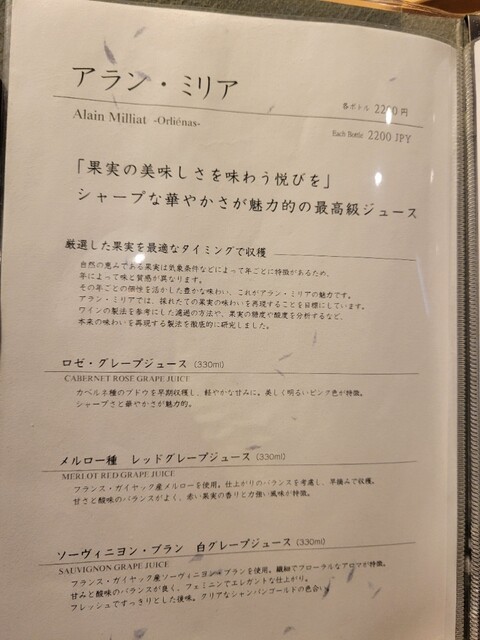 アラン・ミリア
各ボトル 2200 円
Alain Milliat -Orliénas-
Each Bottle 2200 JPY
「果実の美味しさを味わう悦びを」
シャープな華やかさが魅力的の最高級ジュース
厳選した果実を最適なタイミングで収穫
自然の恵みである果実は気象条件などによって年ごとに特徴があるため、
年によって味と質感が異なります。
その年ごとの個性を活かした豊かな味わい、これがアラン・ミリアの魅力です。
アラン・ミリアでは、採れたての果実の味わいを再現することを目標にしています。
ワインの製法を参考にした濾過の方法や、果実の糖度や酸度を分析するなど、
本来の味わいを再現する製法を徹底的に研究しました。
ロゼ・グレープジュース (330ml)
CABERNET ROSE GRAPE JUICE
カベルネ種のブドウを早期収穫し、軽やかな甘みに。美しく明るいピンク色が特徴。
シャープさと華やかさが魅力的。
メルロー種 レッドグレープジュース (330ml)
MERLOT RED GRAPE JUICE
フランス・ガイヤック産メルローを使用。仕上がりのバランスを考慮し、早摘みで収穫。
甘さと酸味のバランスがよく、赤い果実の香りと力強い風味が特徴。
ソーヴィニヨン・ブラン 白グレープジュース (330ml)
SAUVIGNON GRAPE JUICE
フランス・ガイヤック産ソーヴィニヨン・ブランを使用。繊細でフローラルなアロマが特徴。
甘みと酸味のバランスが良く、フェミニンでエレガントな仕上がり。
フレッシュですっきりとした後味。クリアなシャンパンゴールドの色合い